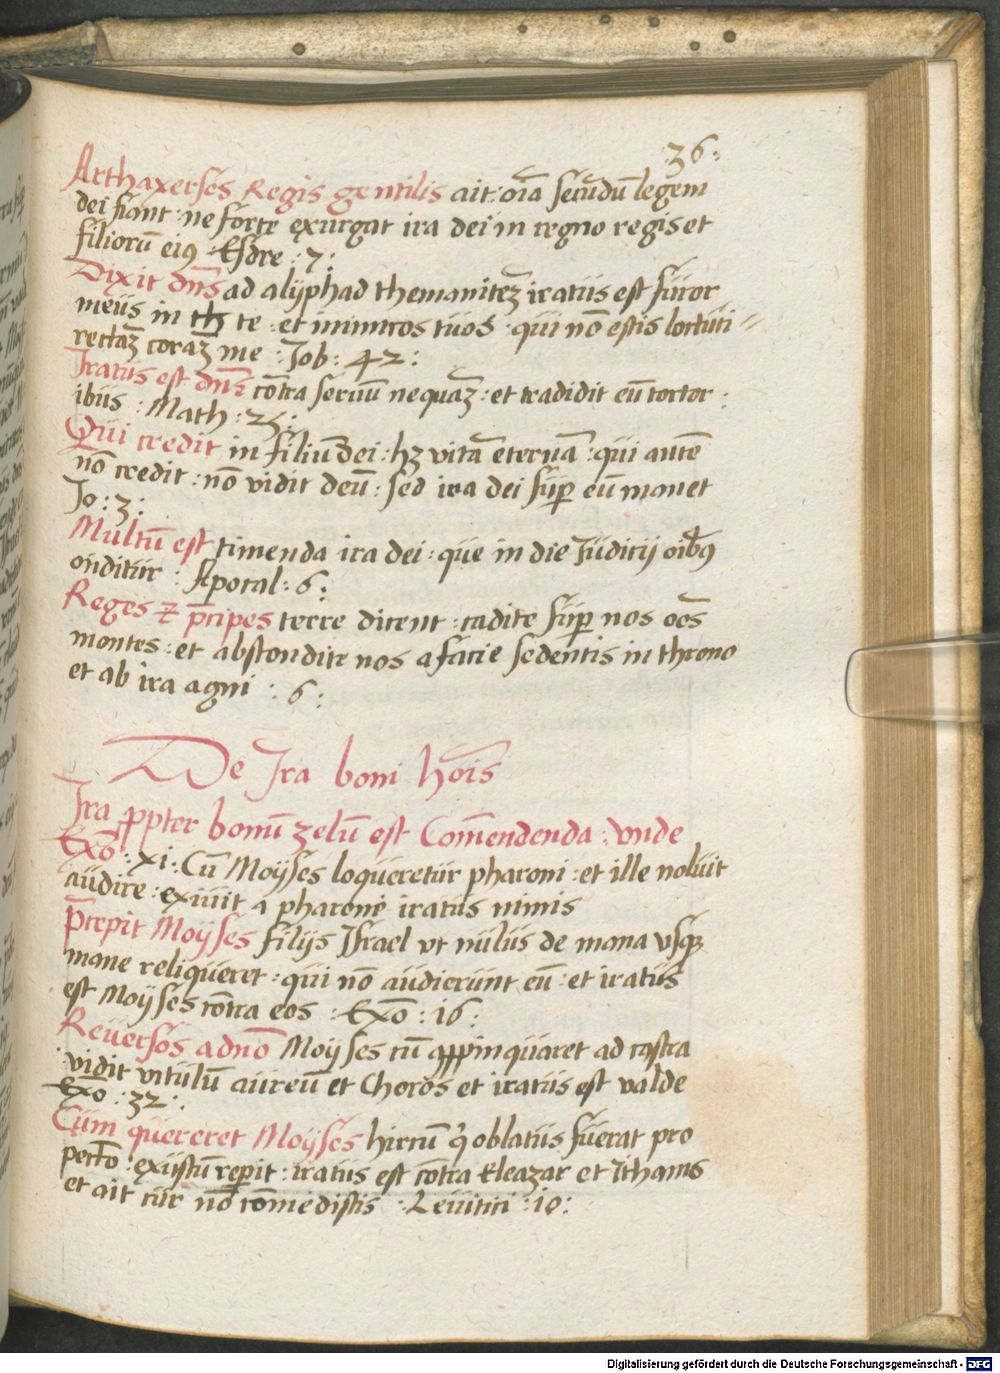 36:
Arthaxerses Regis gentilis ait oīa secūdū legem
dei fiant : ne forte exurgat ira dei in regno regis et
filiorū eiꝰ Esdre : 7 :
Dixit dn̄s ad aliphad themanitēȝ iratus est furor
meus in te : et in amicos tuos : qui nō estis locuti
rectāȝ corāȝ me : Job : 42 :
Iratus est dn̄s cōtra seruū nequāȝ : et tradidit eū tortor :
ibus : Math : 25 :
Qui credit in filiū dei : hȝ vitā eternā : qui autē
nō credit : nō vidit deū : sed ira dei suꝑ eū manet
Jo : 3 :
Multū est timenda ira dei : que in die Judicij oībꝰ
ōnditur : Apocal : 6 :
Reges ⁊ p̄ncipes terre dicent : cadite suꝑ nos oēs
montes : et abscondite nos a facie sedentis in throno
et ab ira agni : 6 :
De Ira boni hoīs
Ira ꝓpter bonū zelū est Com̄endenda : vnde
Exō : xi : Cū Moyses loqueretur pharoni : et ille noluit
audire : exiuit a pharone iratus nimis
P̄cepit Moyses filijs Israel vt nullus de mana vsqꝫ
mane reliqueret : qui nō audierunt eū : et iratus
est Moyses cōtra eos : Exō : 16 :
Reuersos adnō Moyses cū aꝓpinquaret ad castra
vidit vitulū aureū et Choros et iratus est valde
Exō : 32 :
Cum quereret Moyses hircū qͥ oblatus fuerat pro
peccō : exustū reꝑit : iratus est cōtra Eleazar et Ithama
et ait cur nō comedistis : Leuitici : 10 :
Digitalisierung gefördert durch die Deutsche Forschungsgemeinschaft - DFG